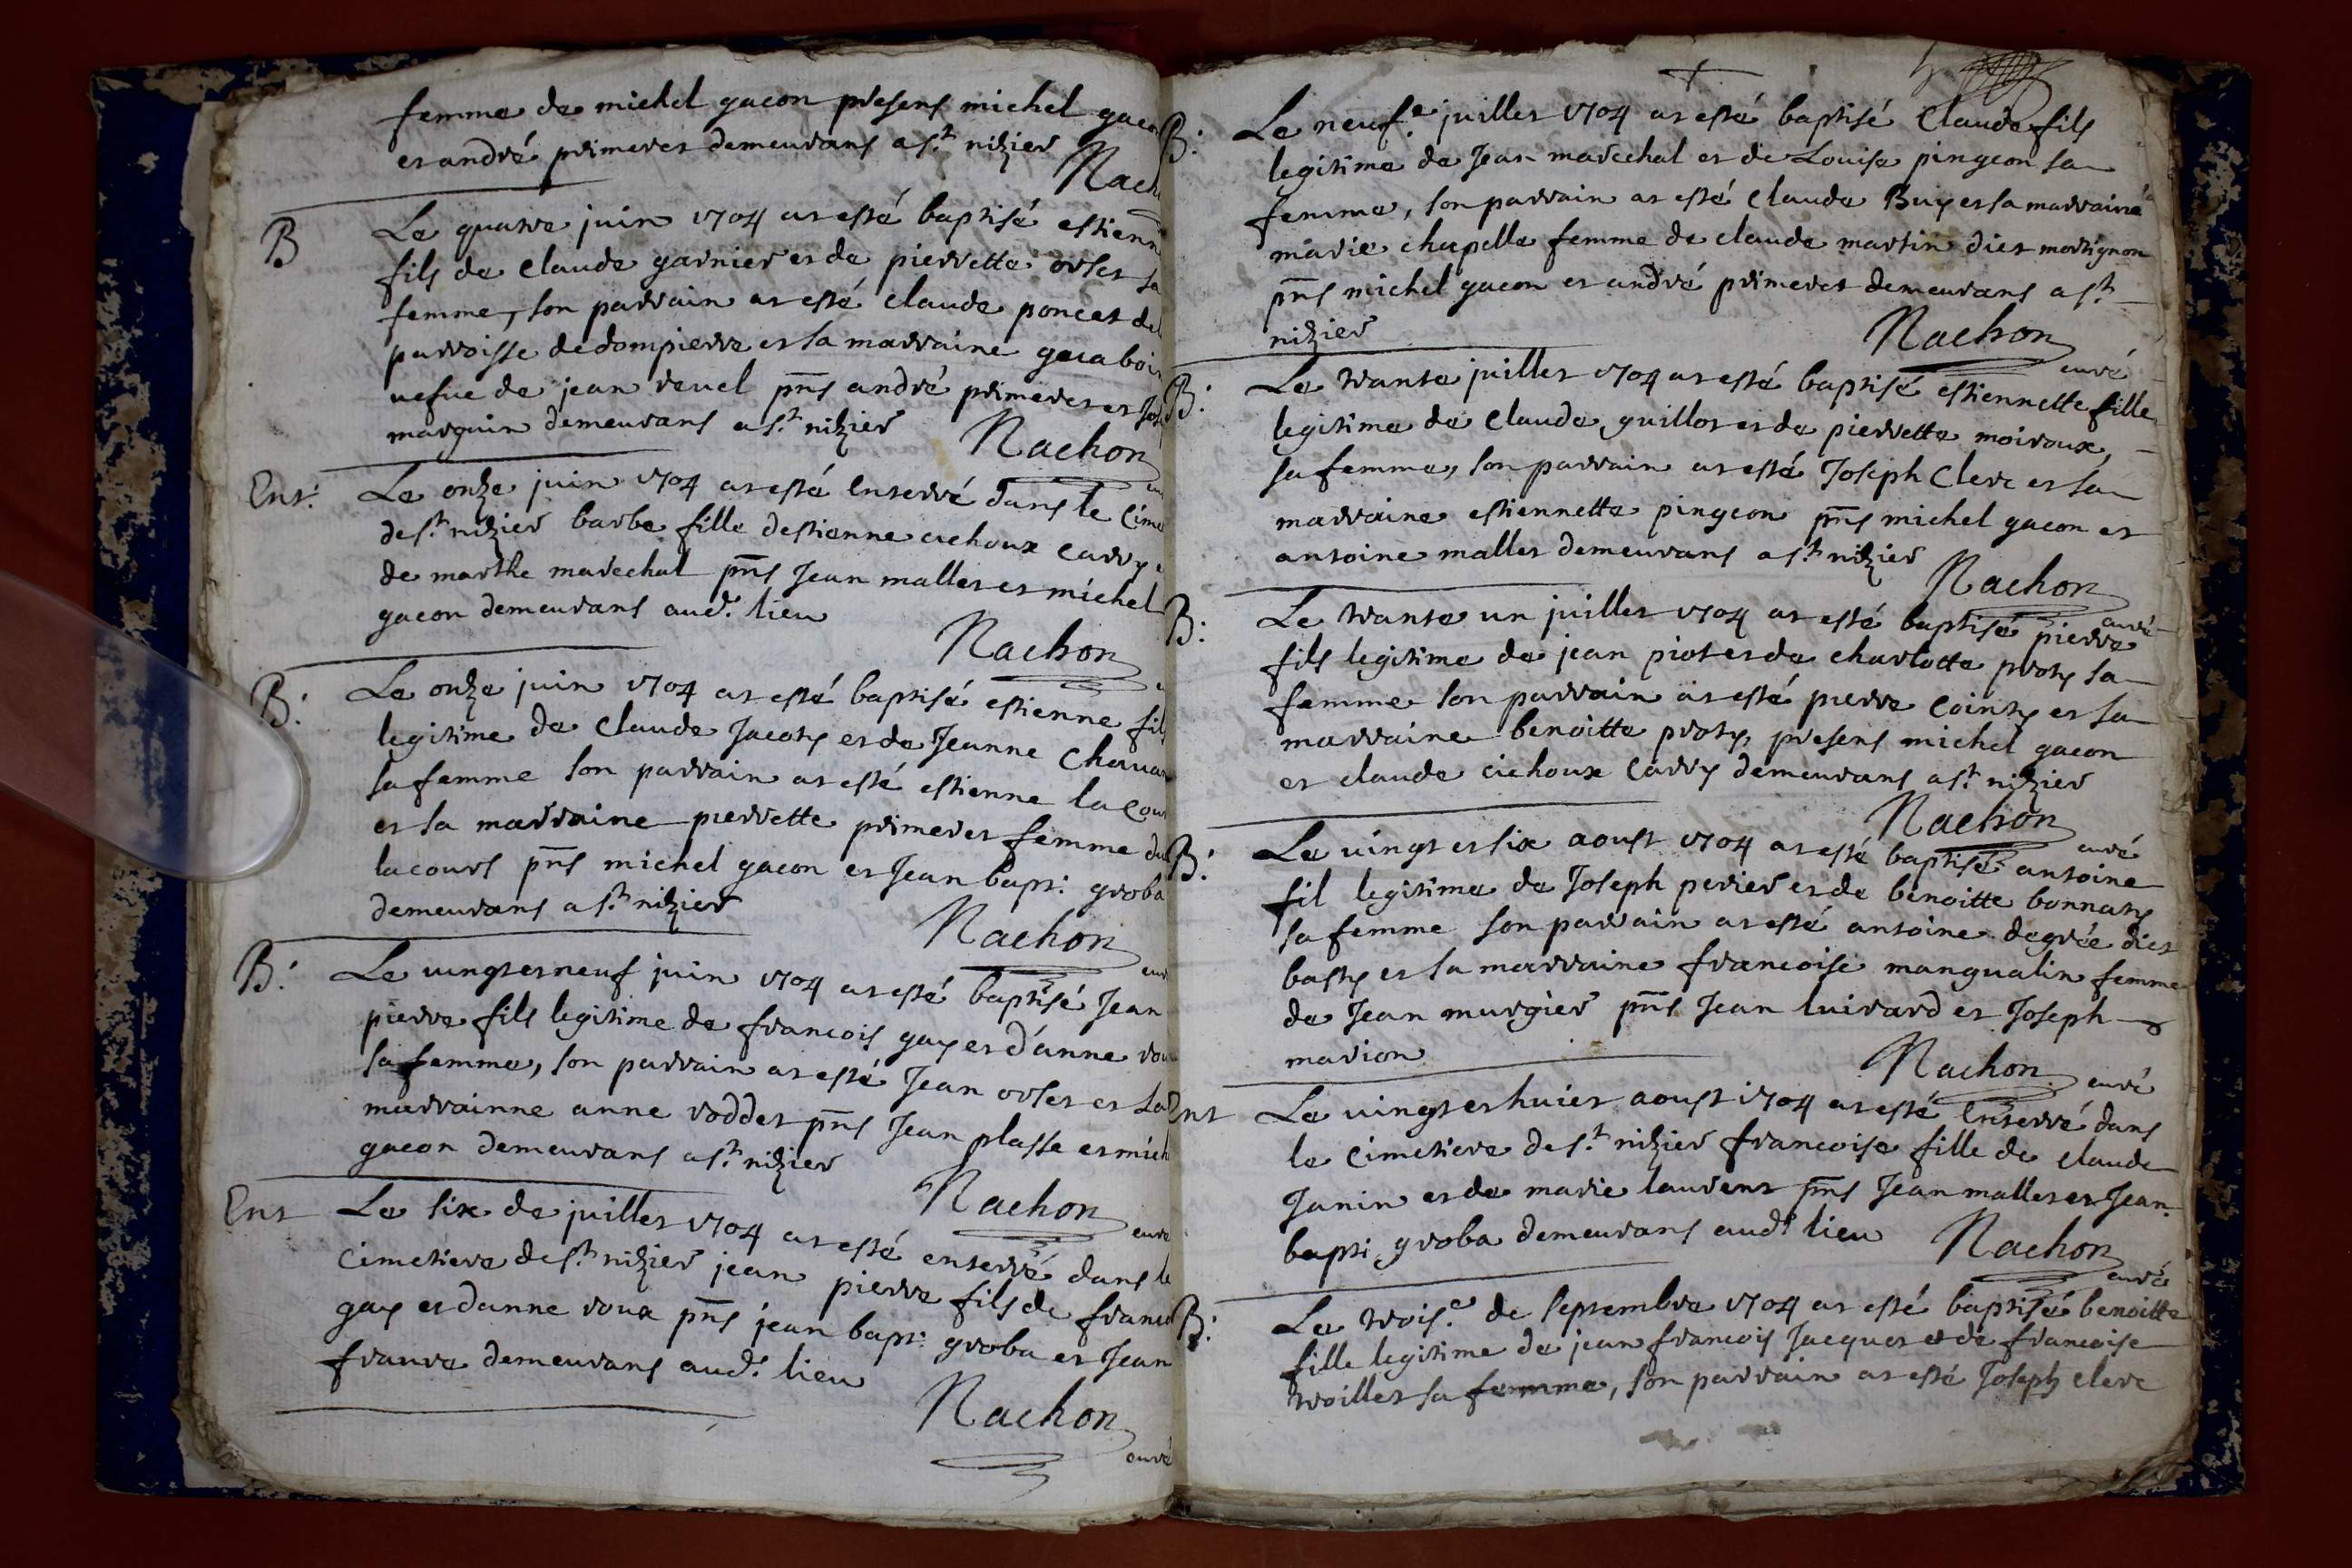 femme de michel gacon presens michel gaco
et andré primeret demeurans a s.t nizier
Nach
B
Le quatre juin 1704 at esté baptisé estienn
fils de Claude garnier et de pierrette orset sa
femme, son parrain at esté claude poncet de
parroisse de dompierre et la marraine
vefue de jean revel pñs andré primeret et
marguin demeurans a s.t nizier
Nachon
Ent:
Le onze juin 1704 at esté Enterré dans le Cime
de s.t nizier barbe fille destienne cichoux carry
de marthe marechal pñs Jean mallet et michel
gacon demeurans aud.t lieu
Nachon
B:
Le onze juin 1704 at esté baptisé estienne fil
legitime de Claude Jacoty et de Jeanne Chava
sa femme son parrain at esté estienne la Cou
et la marraine pierrette primeret femme du
lacours pñs michel gacon et Jean bapt: groba
demeurans a s.t nizier
Nachon
cur
B:
Le vingt et neuf juin 1704 at esté baptisé Jean
pierre fils legitime de francois gay et d'anne rou
sa femme, son parrain at esté Jean orset et la
marrainne anne roddet pñs Jean plasse et mich
gacon demeurans a s.t nizier
Nachon
curé
Ent
Le six de juillet 1704 at esté enterré dans le
Cimetiere de s.t nizier jean pierre fils de franco
gay et danne roux pñs jean bapt: groba et Jean
fravre demeurans aud.t lieu
Nachon
curé
B:
Le neuf.e juillet 1704 at esté baptisé Claude fils
legitime de Jean marechal et de Louise pingeon sa
femme, son parrain at esté Claude Buy et sa marraine
marie chapelle femme de claude martin diet martignon
pñs michel gacon et andré primeret demeurans a s.t
nizier
Nachon
curé
B:
Le trante juillet 1704 at esté baptisé estiennette fille
legitime de Claude guillot et de pierrette moiroux,
sa femme, son parrain at esté Joseph Clerc et sa
marraine estiennette pingeon pñs michel gacon et
antoine mallet demeurans a s.t nizier
Nachon
curé
B:
Le trante un juillet 1704 at esté baptisé pierre
fils legitime de jean piot et de charlotte proty sa
femme son parrain at esté pierre Cointy et sa
marraine benoitte proty, presens michel gacon
et claude cichoux carry demeurans a s.t nizier
Nachon
curé
B:
Le vingt et six aoust 1704 at esté baptisé antoine
fil legitime de Joseph perier et de benoitte bonnaty
sa femme son parrain at esté antoine degrée diet
basty et la marraine francoise mangualin femme
de Jean murgier pñs Jean luirard et Joseph
marion
Nachon
curé
Ent
Le vingt et huiet aoust 1704 at esté Enterré dans
le Cimetiere de s.t nizier francoise fille de claude
Janin et de marie laurent pñs Jean mallet et Jean
bapti groba demeurans aud.t lieu
Nachon
curé
B:
Le trois.e de septembre 1704 at esté baptisé benoitte
fille legitime de jean francois Jacquet et de francoise
troillet sa femme, son parrain at esté Joseph clerc